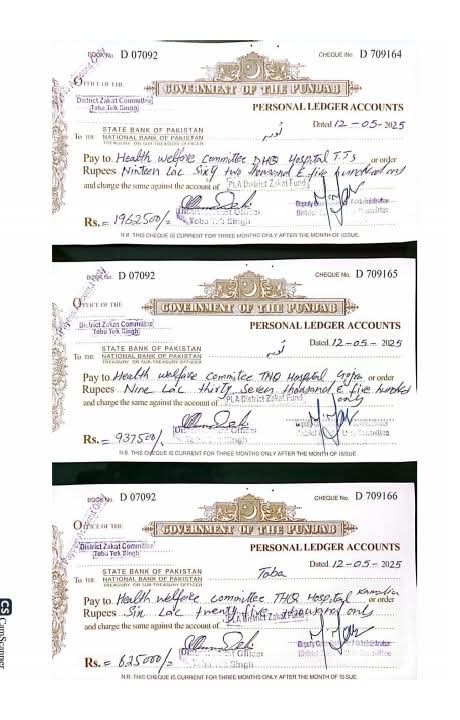 BOOK No. D 07092 CHEQUE No. D 709164
OFFICE OF THE
GOVERNMENT OF THE PUNJAB
District Zakat Committee
Toba Tek Singh
PERSONAL LEDGER ACCOUNTS
Dated 12-05-2025
TO THE STATE BANK OF PAKISTAN
NATIONAL BANK OF PAKISTAN
TREASURY OR SUB-TREASURY OFFICER
Pay to Health welfare committee DHQ Hospital T.T.S or order
Rupees Ninteen Lac Sixty two thousand & five hundred only
and charge the same against the account of PLA District Zakat Fund
Rs. = 1962500/=
N.B. THIS CHEQUE IS CURRENT FOR THREE MONTHS ONLY AFTER THE MONTH OF ISSUE.
BOOK No. D 07092 CHEQUE No. D 709165
OFFICE OF THE
GOVERNMENT OF THE PUNJAB
District Zakat Committee
Toba Tek Singh
PERSONAL LEDGER ACCOUNTS
Dated 12-05-2025
TO THE STATE BANK OF PAKISTAN
NATIONAL BANK OF PAKISTAN
TREASURY OR SUB-TREASURY OFFICER
Pay to Health welfare Committee THQ Hospital Gojra or order
Rupees Nine Lac thirty Seven thousand & five hundred
only
and charge the same against the account of PLA District Zakat Fund
Rs. = 937500/=
N.B. THIS CHEQUE IS CURRENT FOR THREE MONTHS ONLY AFTER THE MONTH OF ISSUE.
BOOK No. D 07092 CHEQUE No. D 709166
OFFICE OF THE
GOVERNMENT OF THE PUNJAB
District Zakat Committee
Toba Tek Singh
PERSONAL LEDGER ACCOUNTS
Dated 12-05-2025
TO THE STATE BANK OF PAKISTAN
NATIONAL BANK OF PAKISTAN
TREASURY OR SUB-TREASURY OFFICER
Toba
Pay to Health welfare committee THQ Hospital Kamalia or order
Rupees Six Lac twenty five thousand only
and charge the same against the account of PLA District Zakat Fund
Rs. = 625000/=
N.B. THIS CHEQUE IS CURRENT FOR THREE MONTHS ONLY AFTER THE MONTH OF ISSUE.
CS CamScanner